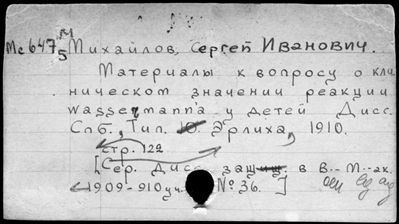 Мс 647/5 Михайлов, Сергей Иванович.
Материалы к вопросу о кли
ническом значении реакции
Wassermann'a у детей. Дисс.
Спб., Тип. Ю. Эрлиха, 1910.
стр. 122
[Сер. Дисс. защищ. в В.-М. ак.
1909-910 уч. № 36. ]